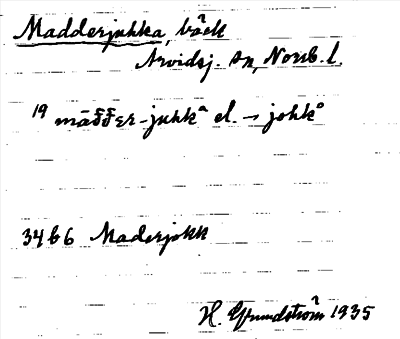 Madderjuhka, bäck
Arvidsj. sn, Norrb. l.
19 māđđer-juhkᵃ el. → johkᵒ
34 b 6 Maderjokk
H. Grundström 1935